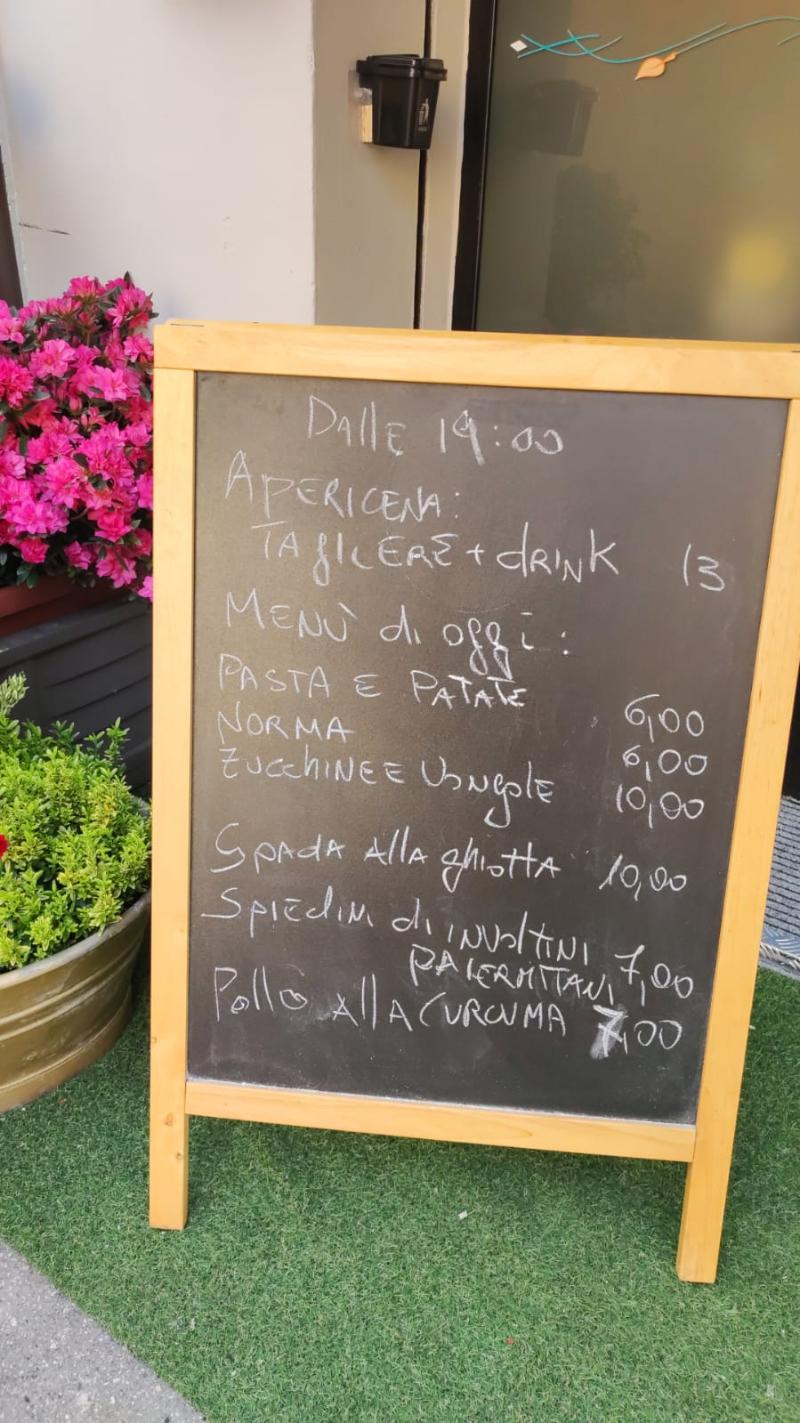 Dalle 19:00
APERICENA:
TAGLIERE + dRINK 13
MENÙ di oggi:
PASTA E PATATE 6,00
NORMA 6,00
ZUCCHINE E VONGOLE 10,00
SPADA Alla ghiotta 10,00
SPIEdINI di INVOLTINI
PALERMITANI 7,00
Pollo Alla CURCUMA 7,00